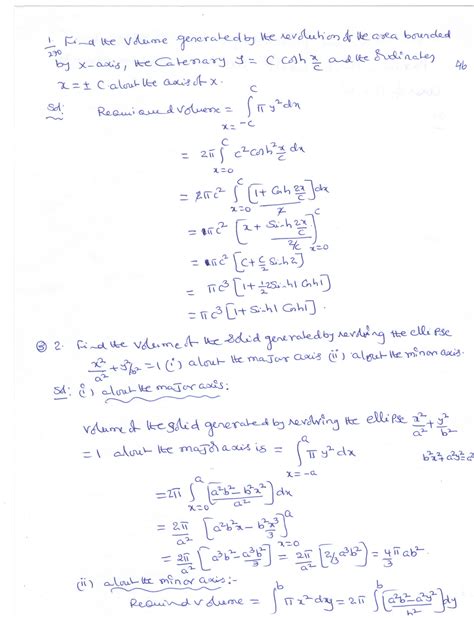 1/270 Find the Volume generated by the revolution of the area bounded
by x-axis, the Catenary y = c cosh x/c and the Ordinates
x = ± c about the axis of x.
Sol: Required volume = ∫_{x=-c}^{c} π y² dx
= 2π ∫_{x=0}^{c} c² cosh² x/c dx
= 2πc² ∫_{x=0}^{c} [1 + Cosh 2x/c]/2 dx
= πc² [x + Sinh 2x/c / 2/c]_{x=0}^{c}
= πc² [c + c/2 Sinh 2]
= πc³ [1 + ½ 2 Sinh1 Cosh1]
= πc³ [1 + Sinh1 Cosh1].
2. Find the volume of the solid generated by revolving the ellipse
x²/a² + y²/b² = 1 (i) about the major axis (ii) about the minor axis.
Sol: (i) about the major axis:
Volume of the solid generated by revolving the ellipse x²/a² + y²/b²
= 1 about the major axis is = ∫_{x=-a}^{a} π y² dx
b²x² + a²y² = a²
= 2π ∫_{x=0}^{a} [a²b² - b²x²]/a² dx
= 2π/a² [a²b²x - b²x³/3]_{x=0}^{a}
= 2π/a² [a³b² - a³b²/3] = 2π/a² [2/3 a³b²] = 4/3 π ab².
(ii) about the minor axis:-
Required volume = ∫^{b} π x² dy = 2π ∫^{b} [a²b² - a²y²]/b² dy